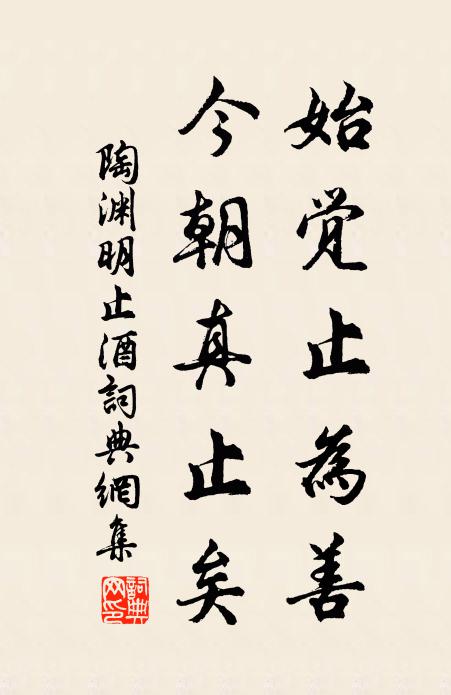 始觉止為善
今朝真止矣
陶渊明止酒詞典網集
詞典网印